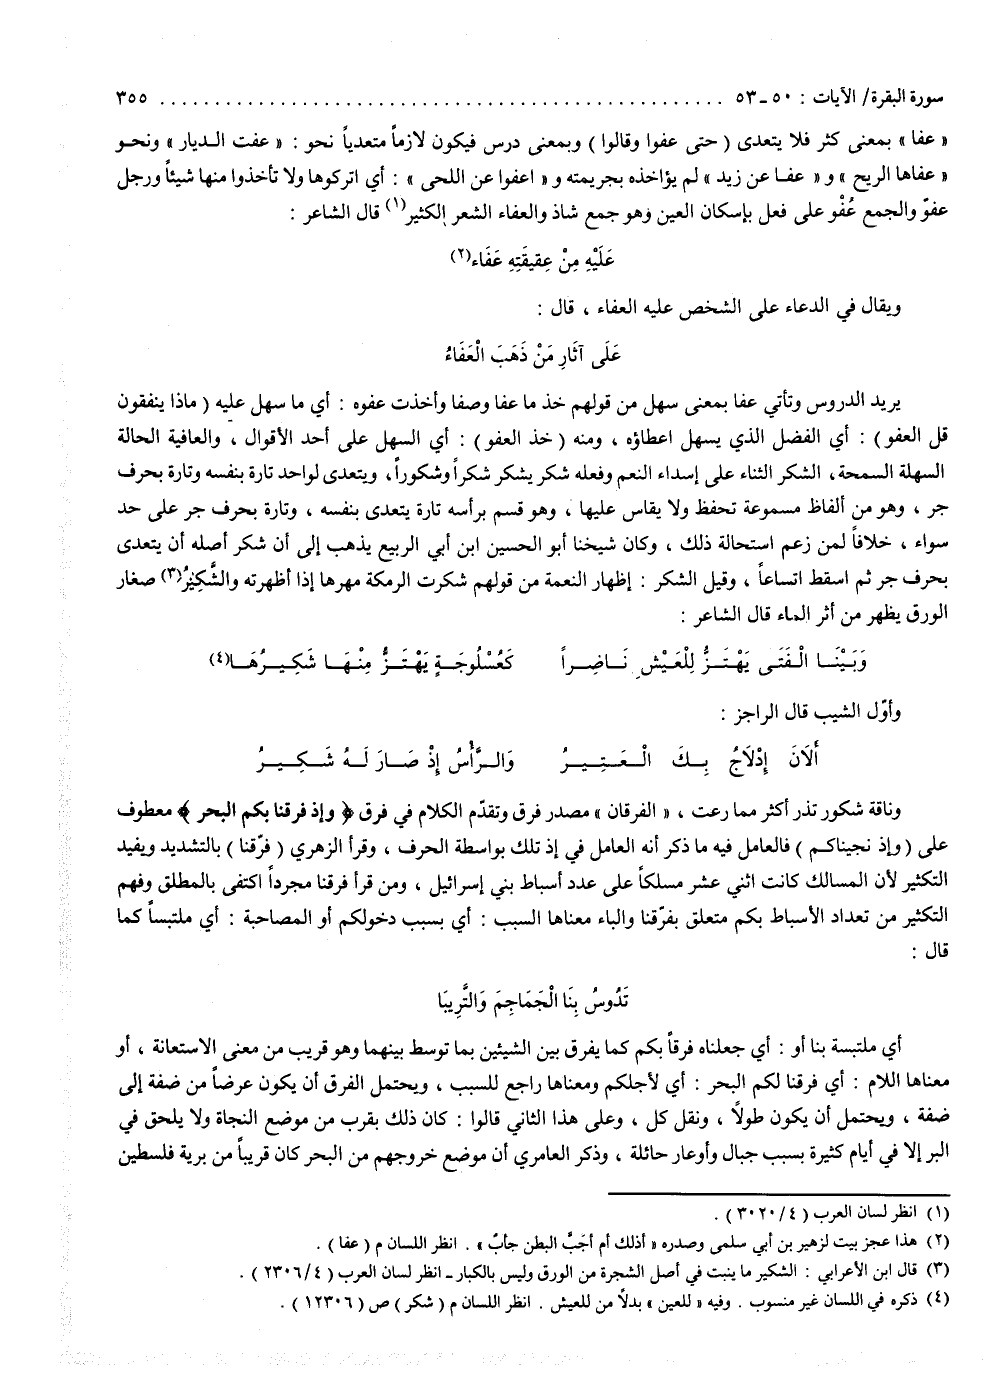 سورة البقرة/ الآيات : ٥٠ـ٥٣ ........................................ ٣٥٥
« عفا » بمعنى كثر فلا يتعدى ( حتى عفوا وقالوا ) وبمعنى درس فيكون لازماً متعدياً نحو : « عفت الـديار » ونحـو
« عفاها الريح » و « عفـا عن زيد » لم يؤاخذه بجريمته و « اعفوا عن اللحى » : أي اتركوها ولا تأخذوا منها شيئاً ورجل
عفوّ والجمع عُفْو على فعل بإسكان العين وهو جمع شاذ والعفاء الشعر الكثير(١) قال الشاعر :
عَلَيْهِ مِنْ عِقيقَتِهِ عَفَاء(٢)
ويقال في الدعاء على الشخص عليه العفاء ، قال :
عَلَى آثَارِ مَنْ ذَهَبَ الْعَفَاءُ
يريد الدروس وتأتي عفا بمعنى سهل من قولهم خذ ما عفا وصفا وأخذت عفوه : أي ما سهل عليه ( ماذا ينفقون
قل العفو ) : أي الفضل الذي يسهل اعطاؤه ، ومنه ( خذ العفو ) : أي السهل على أحد الأقوال ، والعافية الحالة
السهلة السمحة، الشكر الثناء على إسداء النعم وفعله شكر يشكر شكراً وشكوراً، ويتعدى لواحد تارة بنفسه وتارة بحرف
جر ، وهو من ألفاظ مسموعة تحفظ ولا يقاس عليها ، وهو قسم برأسه تارة يتعدى بنفسه ، وتارة بحرف جر على حد
سواء ، خلافاً لمن زعم استحالة ذلك ، وكان شيخنا أبو الحسين ابن أبي الربيع يذهب إلى أن شكر أصله أن يتعدى
بحرف جر ثم اسقط اتساعاً ، وقيل الشكر : إظهار النعمة من قولهم شكرت الرمكة مهرها إذا أظهرته والشَّكِيْرُ(٣) صغار
الورق يظهر من أثر الماء قال الشاعر :
وَبَيْنَـا الْـفَتَى يَهْـتَـزُّ لِلْعَيْشِ نَـاضِـراً كَعُسْلُوجَـةٍ يَهْـتَـزُّ مِنْـهَـا شَكِـيـرُهَـا(٤)
وأوّل الشيب قال الراجز :
أَلَانَ إِدْلَاجُ بِـكَ الْـعَـتِـيـرُ وَالـرَّأْسُ إِذْ صَـارَ لَـهُ شَـكِـيـرُ
وناقة شكور تذر أكثر مما رعت ، « الفرقان » مصدر فرق وتقدّم الكلام في فرق ﴿ وإذ فرقنا بكم البحر ﴾ معطوف
على ( وإذ نجيناكـم ) فالعامل فيه ما ذكر أنه العامل في إذ تلك بواسطة الحرف ، وقرأ الزهري ( فرّقنا ) بالتشديد ويفيد
التكثير لأن المسالك كانت اثني عشر مسلكاً على عدد أسباط بني إسرائيل ، ومن قرأ فرقنا مجرداً اكتفى بالمطلق وفهم
التكثير من تعداد الأسباط بكم متعلق بفرّقنا والباء معناها السبب : أي بسبب دخولكم أو المصاحبة : أي ملتبساً كما
قال :
تَدُوسُ بِنَا الْجَمَاجِمَ وَالتَّرِيبَا
أي ملتبسة بنا أو : أي جعلناه فرقاً بكم كما يفرق بين الشيئين بما توسط بينهما وهو قريب من معنى الاستعانة ، أو
معناها اللام : أي فرقنا لكم البحر : أي لأجلكم ومعناها راجع للسبب ، ويحتمل الفرق أن يكون عرضاً من ضفة إلى
ضفة ، ويحتمل أن يكون طولاً ، ونقل كل ، وعلى هذا الثاني قالوا : كان ذلك بقرب من موضع النجاة ولا يلحق في
البر إلا في أيام كثيرة بسبب جبال وأوعار حائلة ، وذكر العامري أن موضع خروجهم من البحر كان قريباً من برية فلسطين
(١) انظر لسان العرب ( ٣٠٢٠/٤ ) .
(٢) هذا عجز بيت لزهير بن أبي سلمى وصدره « أذلك أم أجَبَّ البطن جأبُ » . انظر اللسان م ( عفا ) .
(٣) قال ابن الأعرابي : الشكير ما ينبت في أصل الشجرة من الورق وليس بالكبار ـ انظر لسان العرب ( ٢٣٠٦/٤ ) .
(٤) ذكره في اللسان غير منسوب . وفيه « للعين » بدلاً من للعيش . انظر اللسان م ( شكر ) ص ( ١٢٣٠٦ ) .